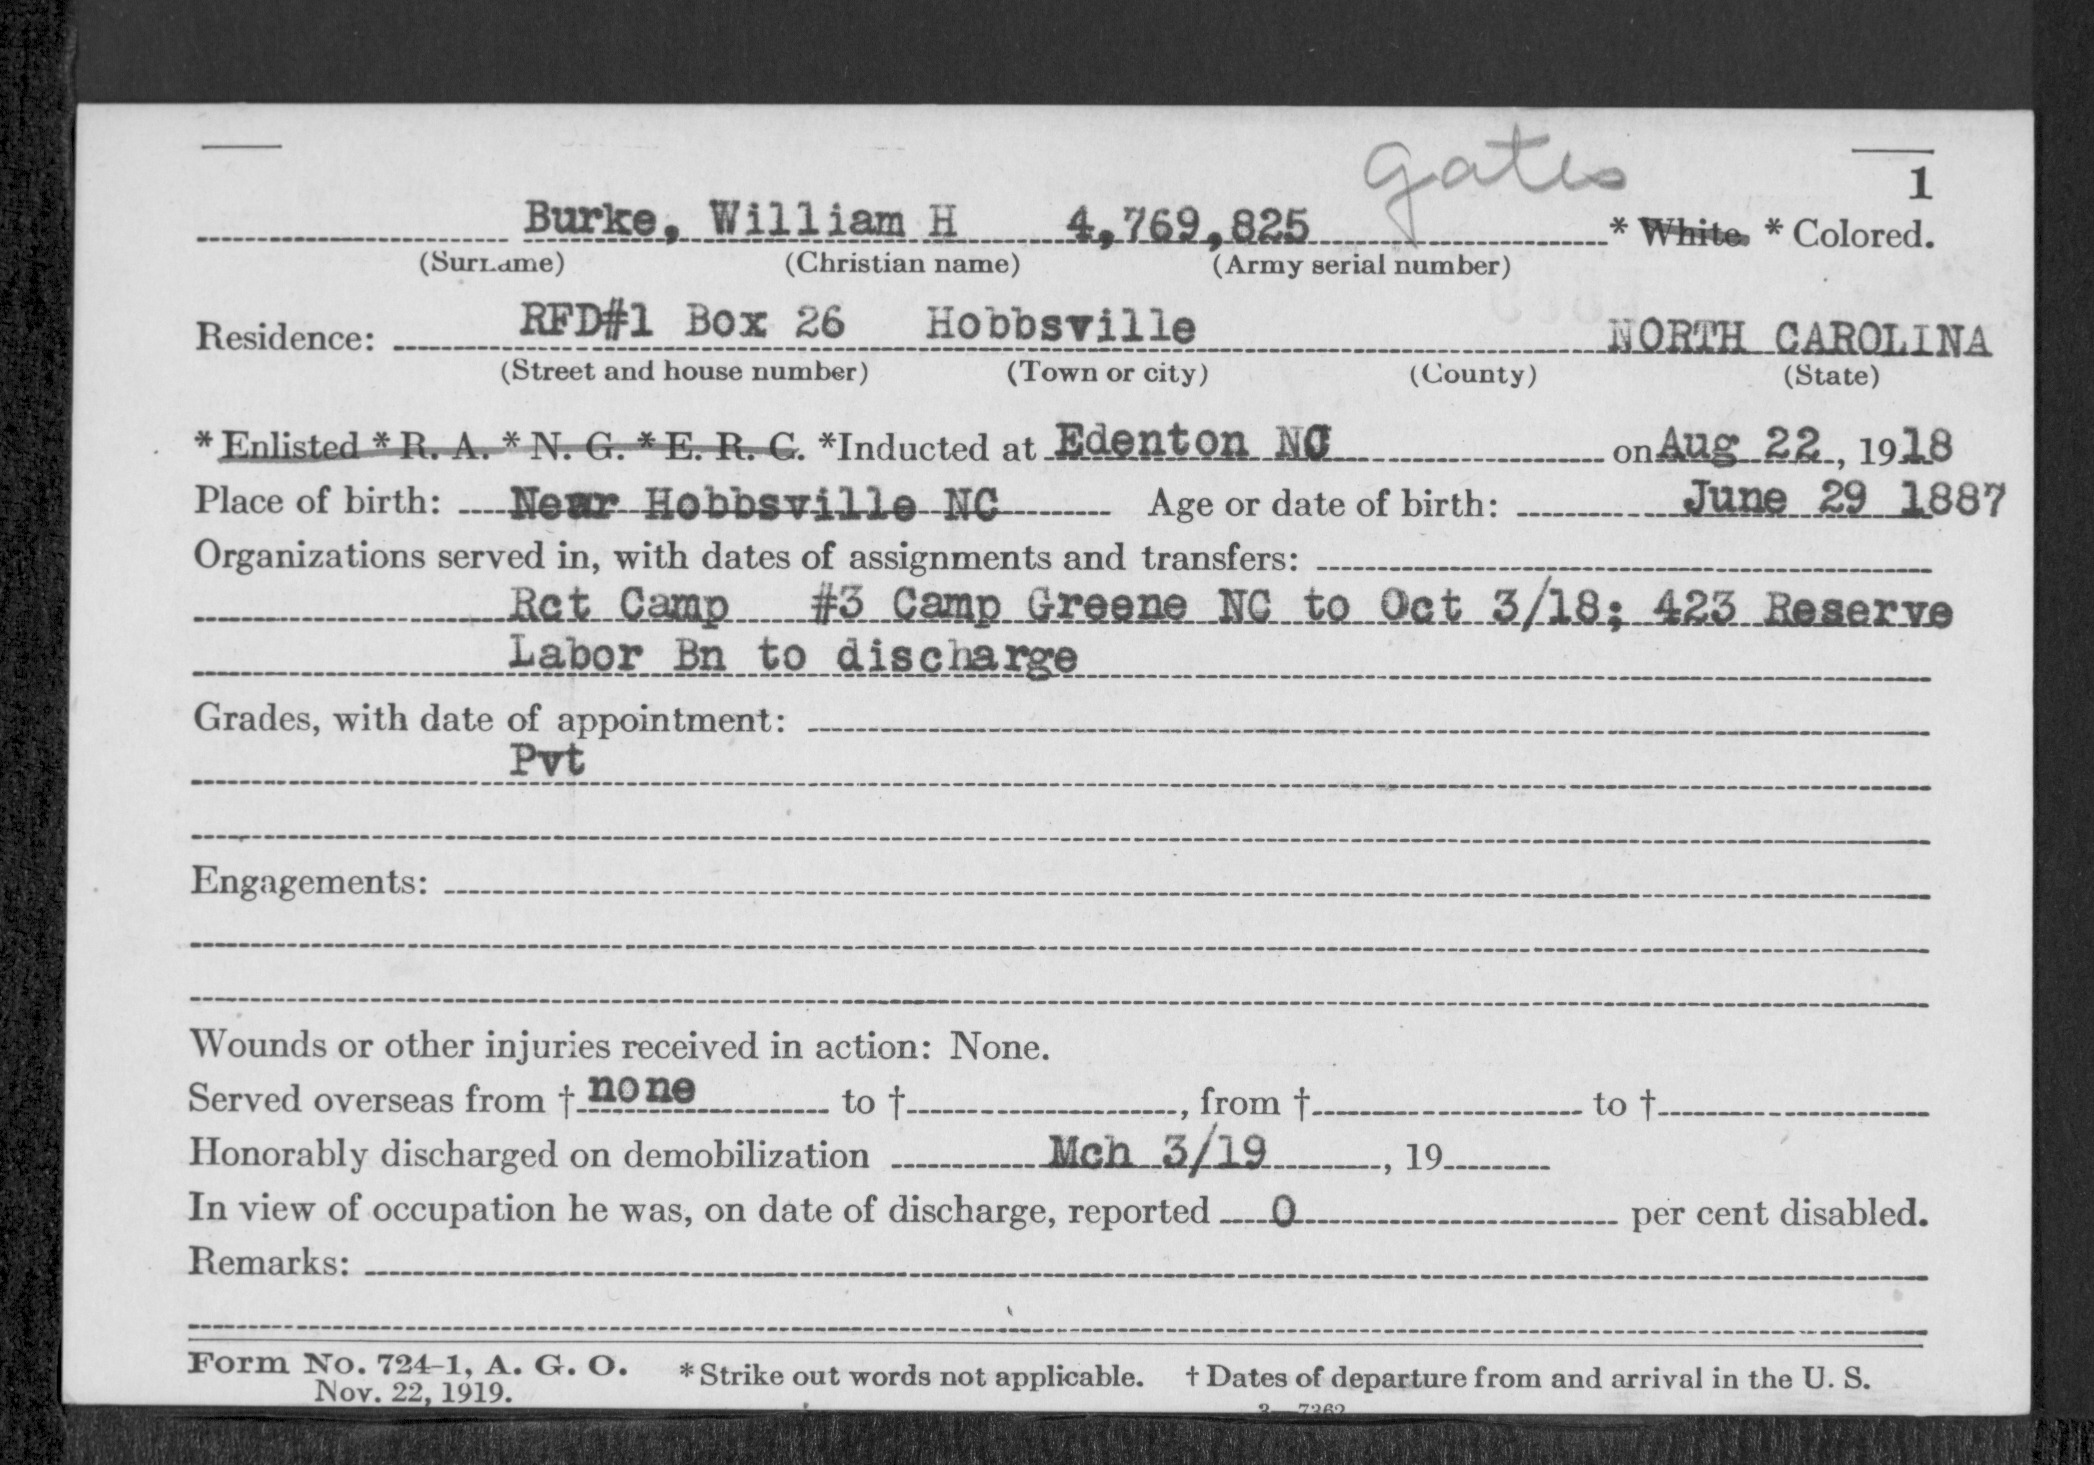 gates
1
Burke, William H 4,769,825 * White. * Colored.
(Surname) (Christian name) (Army serial number)
Residence: RFD#1 Box 26 Hobbsville NORTH CAROLINA
(Street and house number) (Town or city) (County) (State)
* Enlisted * R. A. * N. G. * E. R. C. *Inducted at Edenton NC on Aug 22, 1918
Place of birth: Near Hobbsville NC Age or date of birth: June 29 1887
Organizations served in, with dates of assignments and transfers:
Rct Camp #3 Camp Greene NC to Oct 3/18; 423 Reserve
Labor Bn to discharge
Grades, with date of appointment:
Pvt
Engagements:
Wounds or other injuries received in action: None.
Served overseas from † none to †, from † to †
Honorably discharged on demobilization Mch 3/19, 19
In view of occupation he was, on date of discharge, reported 0 per cent disabled.
Remarks:
Form No. 724-1, A. G. O. * Strike out words not applicable. † Dates of departure from and arrival in the U. S.
Nov. 22, 1919.
3—7362